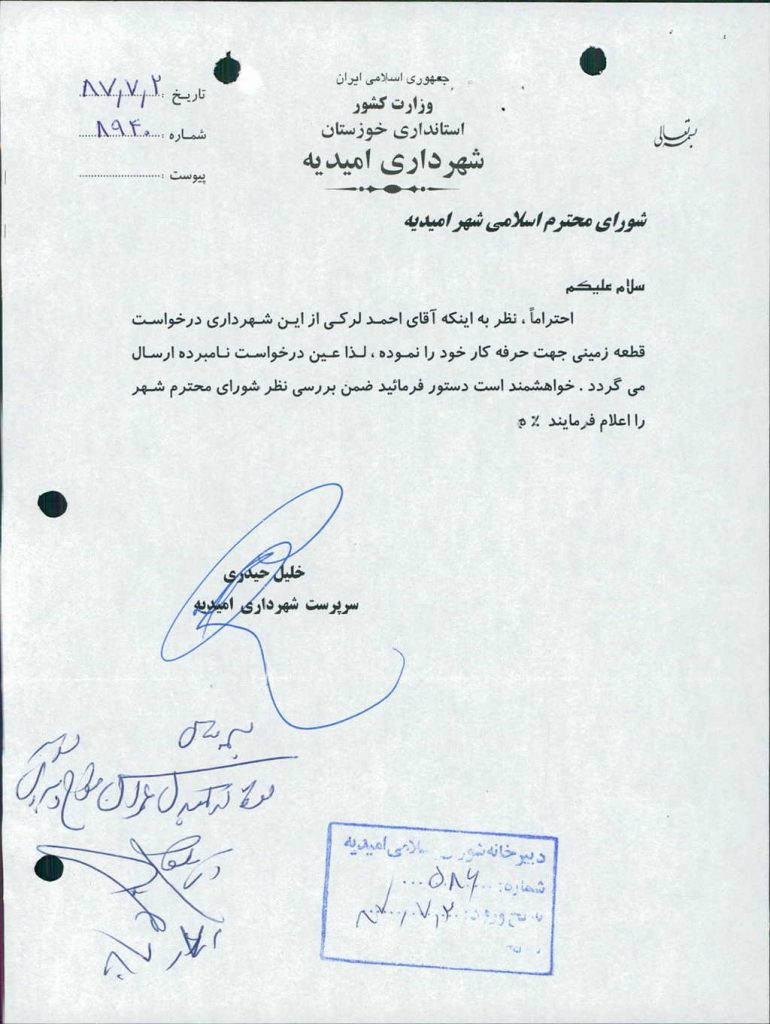 بسمه تعالی
جمهوری اسلامی ایران
وزارت کشور
استانداری خوزستان
شهرداری امیدیه
تاریخ : ۸۷٫۷٫۲
شماره : ۸۹۴۰
پیوست :
شورای محترم اسلامی شهر امیدیه
سلام علیکم
احتراماً ، نظر به اینکه آقای احمد لرکی از این شهرداری درخواست
قطعه زمینی جهت حرفه کار خود را نموده ، لذا عین درخواست نامبرده ارسال
می گردد . خواهشمند است دستور فرمائید ضمن بررسی نظر شورای محترم شهر
را اعلام فرمایند ٪ م
خلیل حیدری
سرپرست شهرداری امیدیه
دبیرخانه شورای اسلامی امیدیه
شماره: ۵۸۶